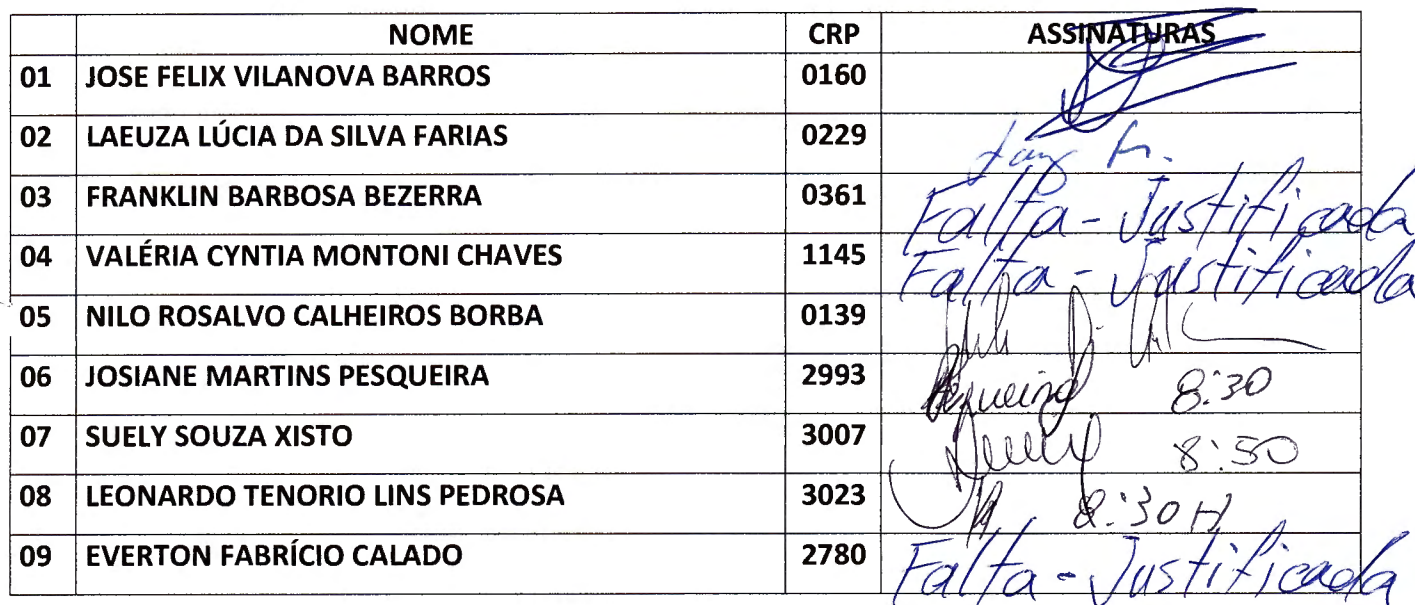 NOME CRP ASSINATURAS
01 JOSE FELIX VILANOVA BARROS 0160
02 LAEUZA LÚCIA DA SILVA FARIAS 0229
03 FRANKLIN BARBOSA BEZERRA 0361 Falta - Justificada
04 VALÉRIA CYNTIA MONTONI CHAVES 1145 Falta - Justificada
05 NILO ROSALVO CALHEIROS BORBA 0139
06 JOSIANE MARTINS PESQUEIRA 2993 8:30
07 SUELY SOUZA XISTO 3007 8:50
08 LEONARDO TENORIO LINS PEDROSA 3023 8:30 H
09 EVERTON FABRÍCIO CALADO 2780 Falta - Justificada